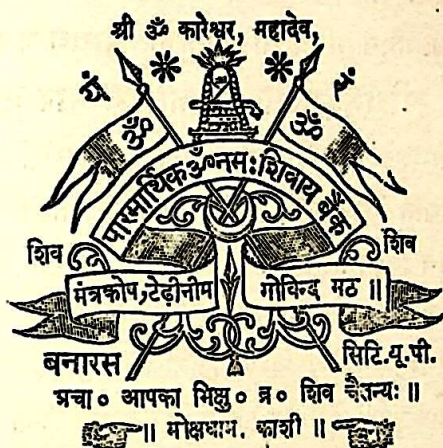 श्री ॐ कारेश्वर, महादेव,
यं
ॐ ॐ
पारमार्थिक ॐ नमः शिवाय बैंक
शिव शिव
मंत्रकोप, टेढ़ीनीम गोविन्द मठ ॥
बनारस सिटि. यू. पी.
प्रचा० आपका भिक्षु० ब्र० शिव चैतन्यः ॥
॥ मोक्षधाम. काशी ॥